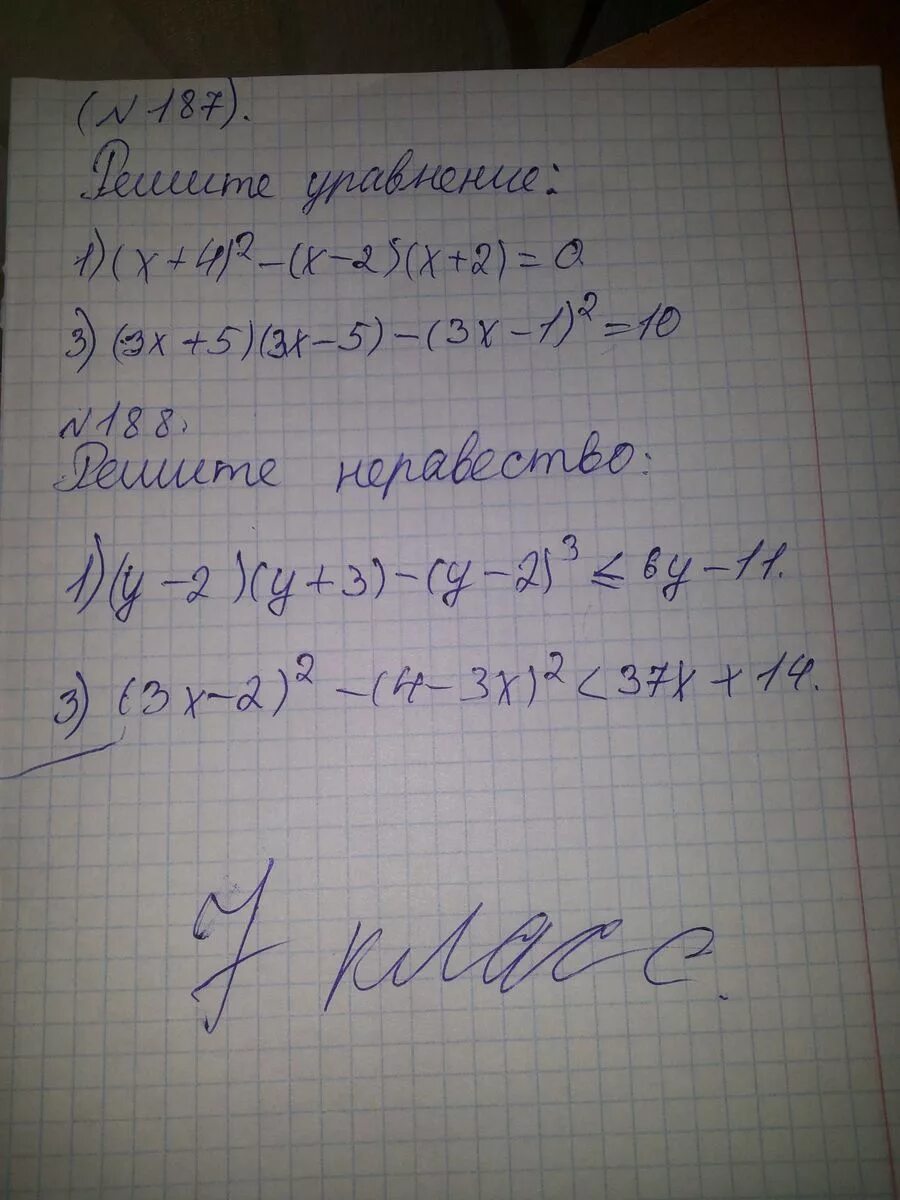 (N187).
Решите уравнение:
1) (x+4)² – (x–2)(x+2) = 0
3) (3x+5)(3x–5) – (3x–1)² = 10
N188.
Решите неравество:
1) (y–2)(y+3) – (y–2)³ ≤ 6y–11.
3) (3x–2)² – (4–3x)² < 37x + 14.
7 класс.